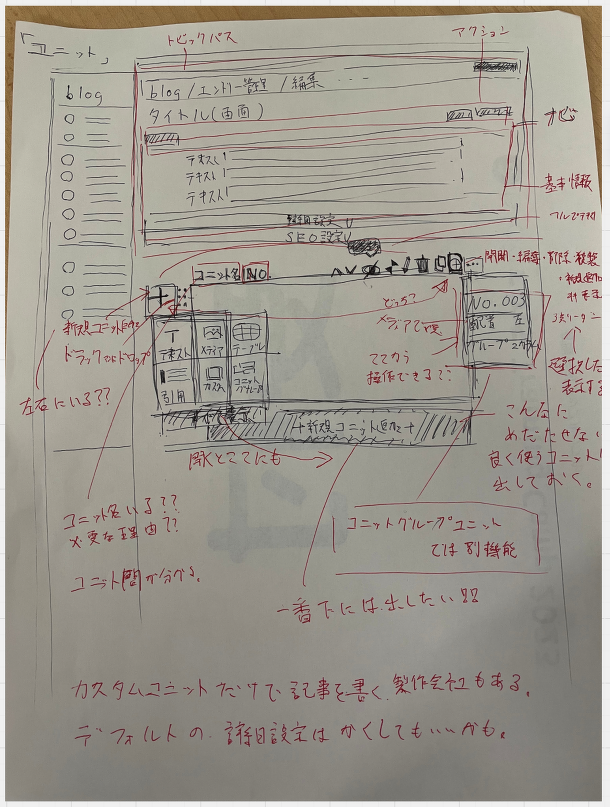 「ユニット」
トピックパス
アクション
blog
blog / エントリー管理 / 編集 ・・・
タイトル(画面)
ナビ
テキスト
テキスト
テキスト
基本情報
詳細設定 ∨
SEO設定 ∨
ユニット名 NO.
開閉・編集・削除・複製
+
どっち?
メディアで
NO.003
配置 左
新規ユニット
ドラッグ&ドロップ
T
テキスト
メディア
テーブル
引用
カスタム
ユニットグループ
ここから
操作できる??
選択した
表示する
左右にいる??
+新規ユニット追加+
こんなに
めだたせない
良く使うユニット
出しておく。
開くとここにも
ユニット名いる??
必要な理由??
ユニット間が分かる。
ユニットグループユニット
では別機能
一番下には出したい!!
カスタムユニットだけで記事を書く製作会社もある。
デフォルトの詳細設定はかくしてもいいかも。